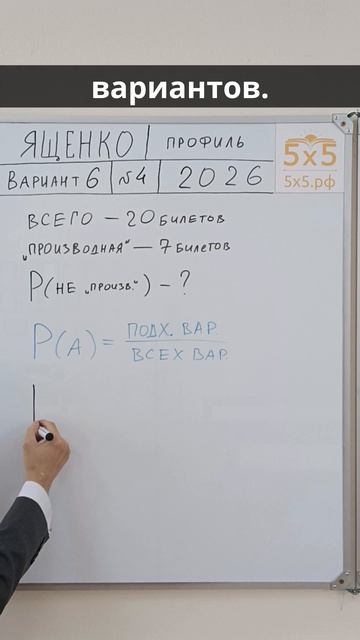 вариантов.
ЯЩЕНКО ПРОФИЛЬ
5x5
ВАРИАНТ 6 №4 2026
5x5.рф
ВСЕГО — 20 БИЛЕТОВ
„ПРОИЗВОДНАЯ“ — 7 БИЛЕТОВ
P(НЕ „ПРОИЗВ.“) — ?
P(A) = ПОДХ. ВАР.
ВСЕХ ВАР.